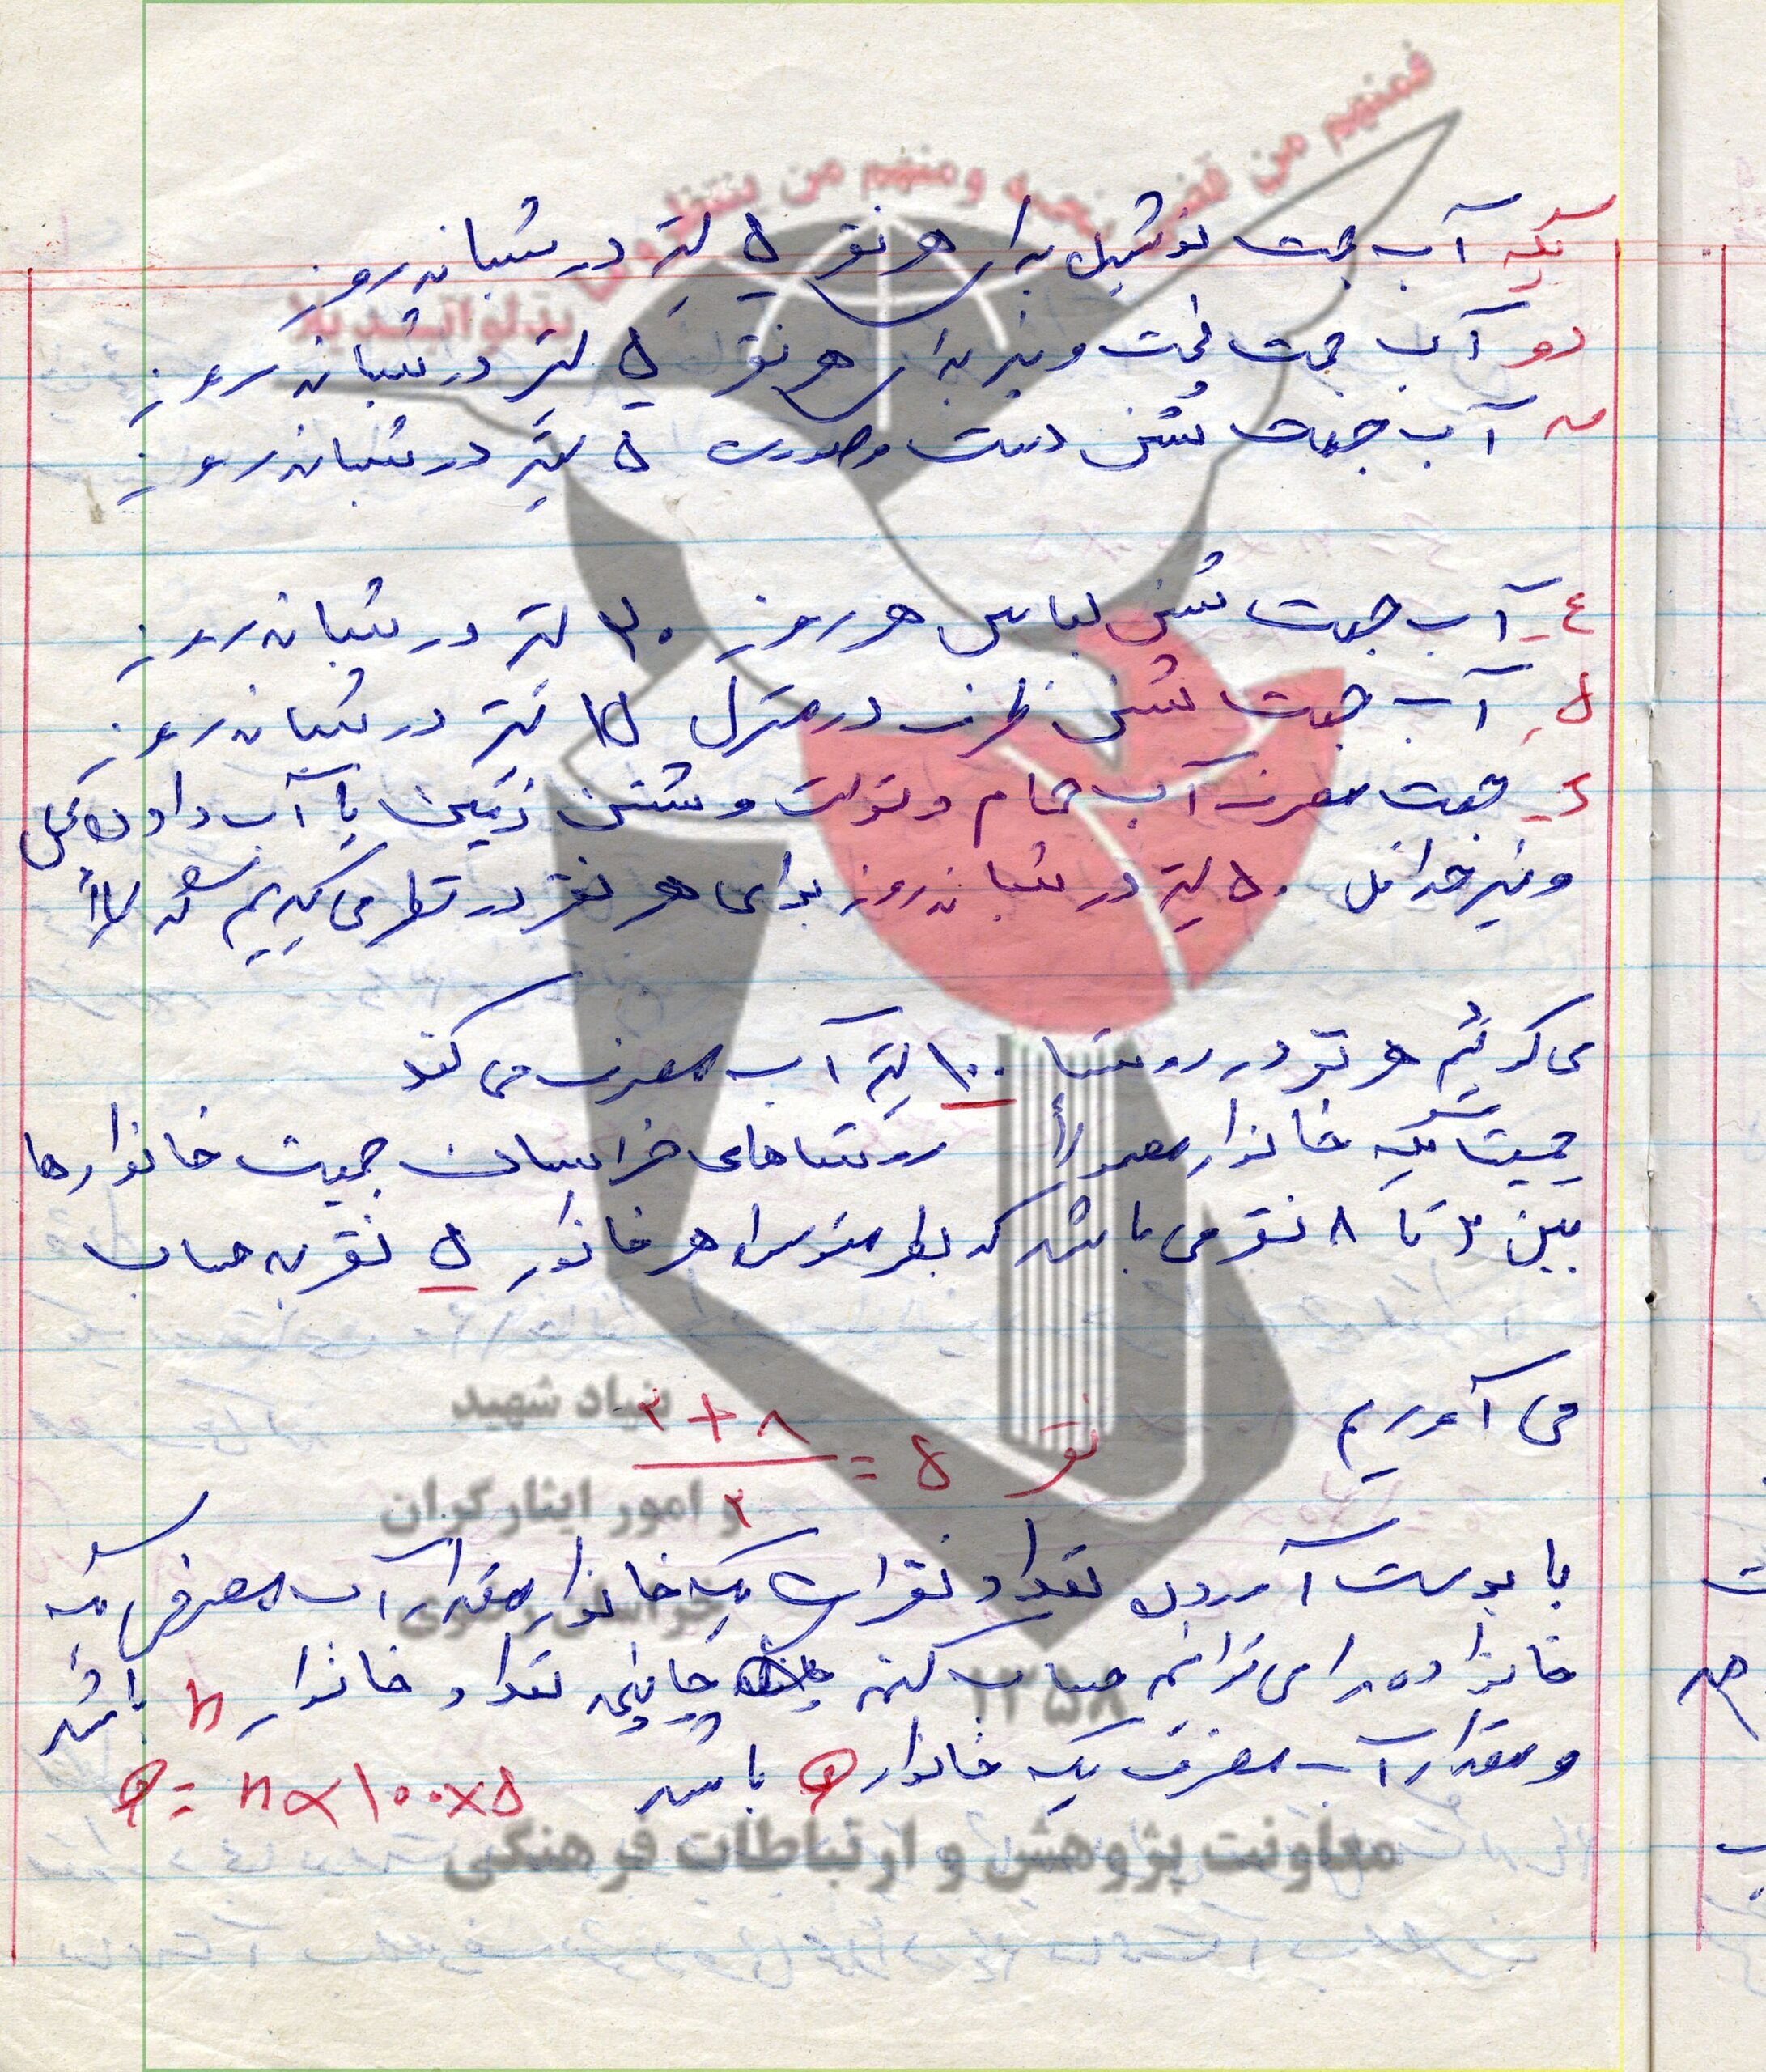 فمنهم من قضی نحبه ومنهم من ینتظر و
بدلوا تبدیلا
یک آب جهت نوشیدن برای هر نفر ۵ لیتر در شبانه روز
دو آب جهت پخت و پز برای هر نفر ۵ لیتر در شبانه روز
سه آب جهت شستن دست و صورت ۵ لیتر در شبانه روز
٤ـ آب جهت شستن لباس هر روز ۲۰ لیتر در شبانه روز
۵ـ آب جهت شستن ظرف در منزل ۱۵ لیتر در شبانه روز
۶ـ جهت مصرف آب حمام و توالت و شستن زمین یا آب دادن گل
و غیر حداقل ۵۰ لیتر در شبانه روز برای هر نفر در نظر می گیریم که
می کردیم هر نفر در روستا ۱۰۰ لیتر آب مصرف می کند
جمعیت یک خانوار معمولاً روستاهای خراسان جمعیت خانوارها
بین ۲ تا ۸ نفر می باشد که بطور متوسط هر خانوار ۵ نفر به حساب
می آوریم
نفر ۵ = ۲+۸
۲
بنیاد شهید
و امور ایثارگران
خراسان رضوی
با بدست آمدن تعداد نفرات یک خانوار مقدار آب مصرفی یک
خانواده را می توانیم حساب کنیم چنانچه تعداد خانوار n باشد
۱۳۵۸
و مقدار آب مصرف یک خانوار Q باشد Q = n×۱۰۰×۵
معاونت پژوهش و ارتباطات فرهنگی